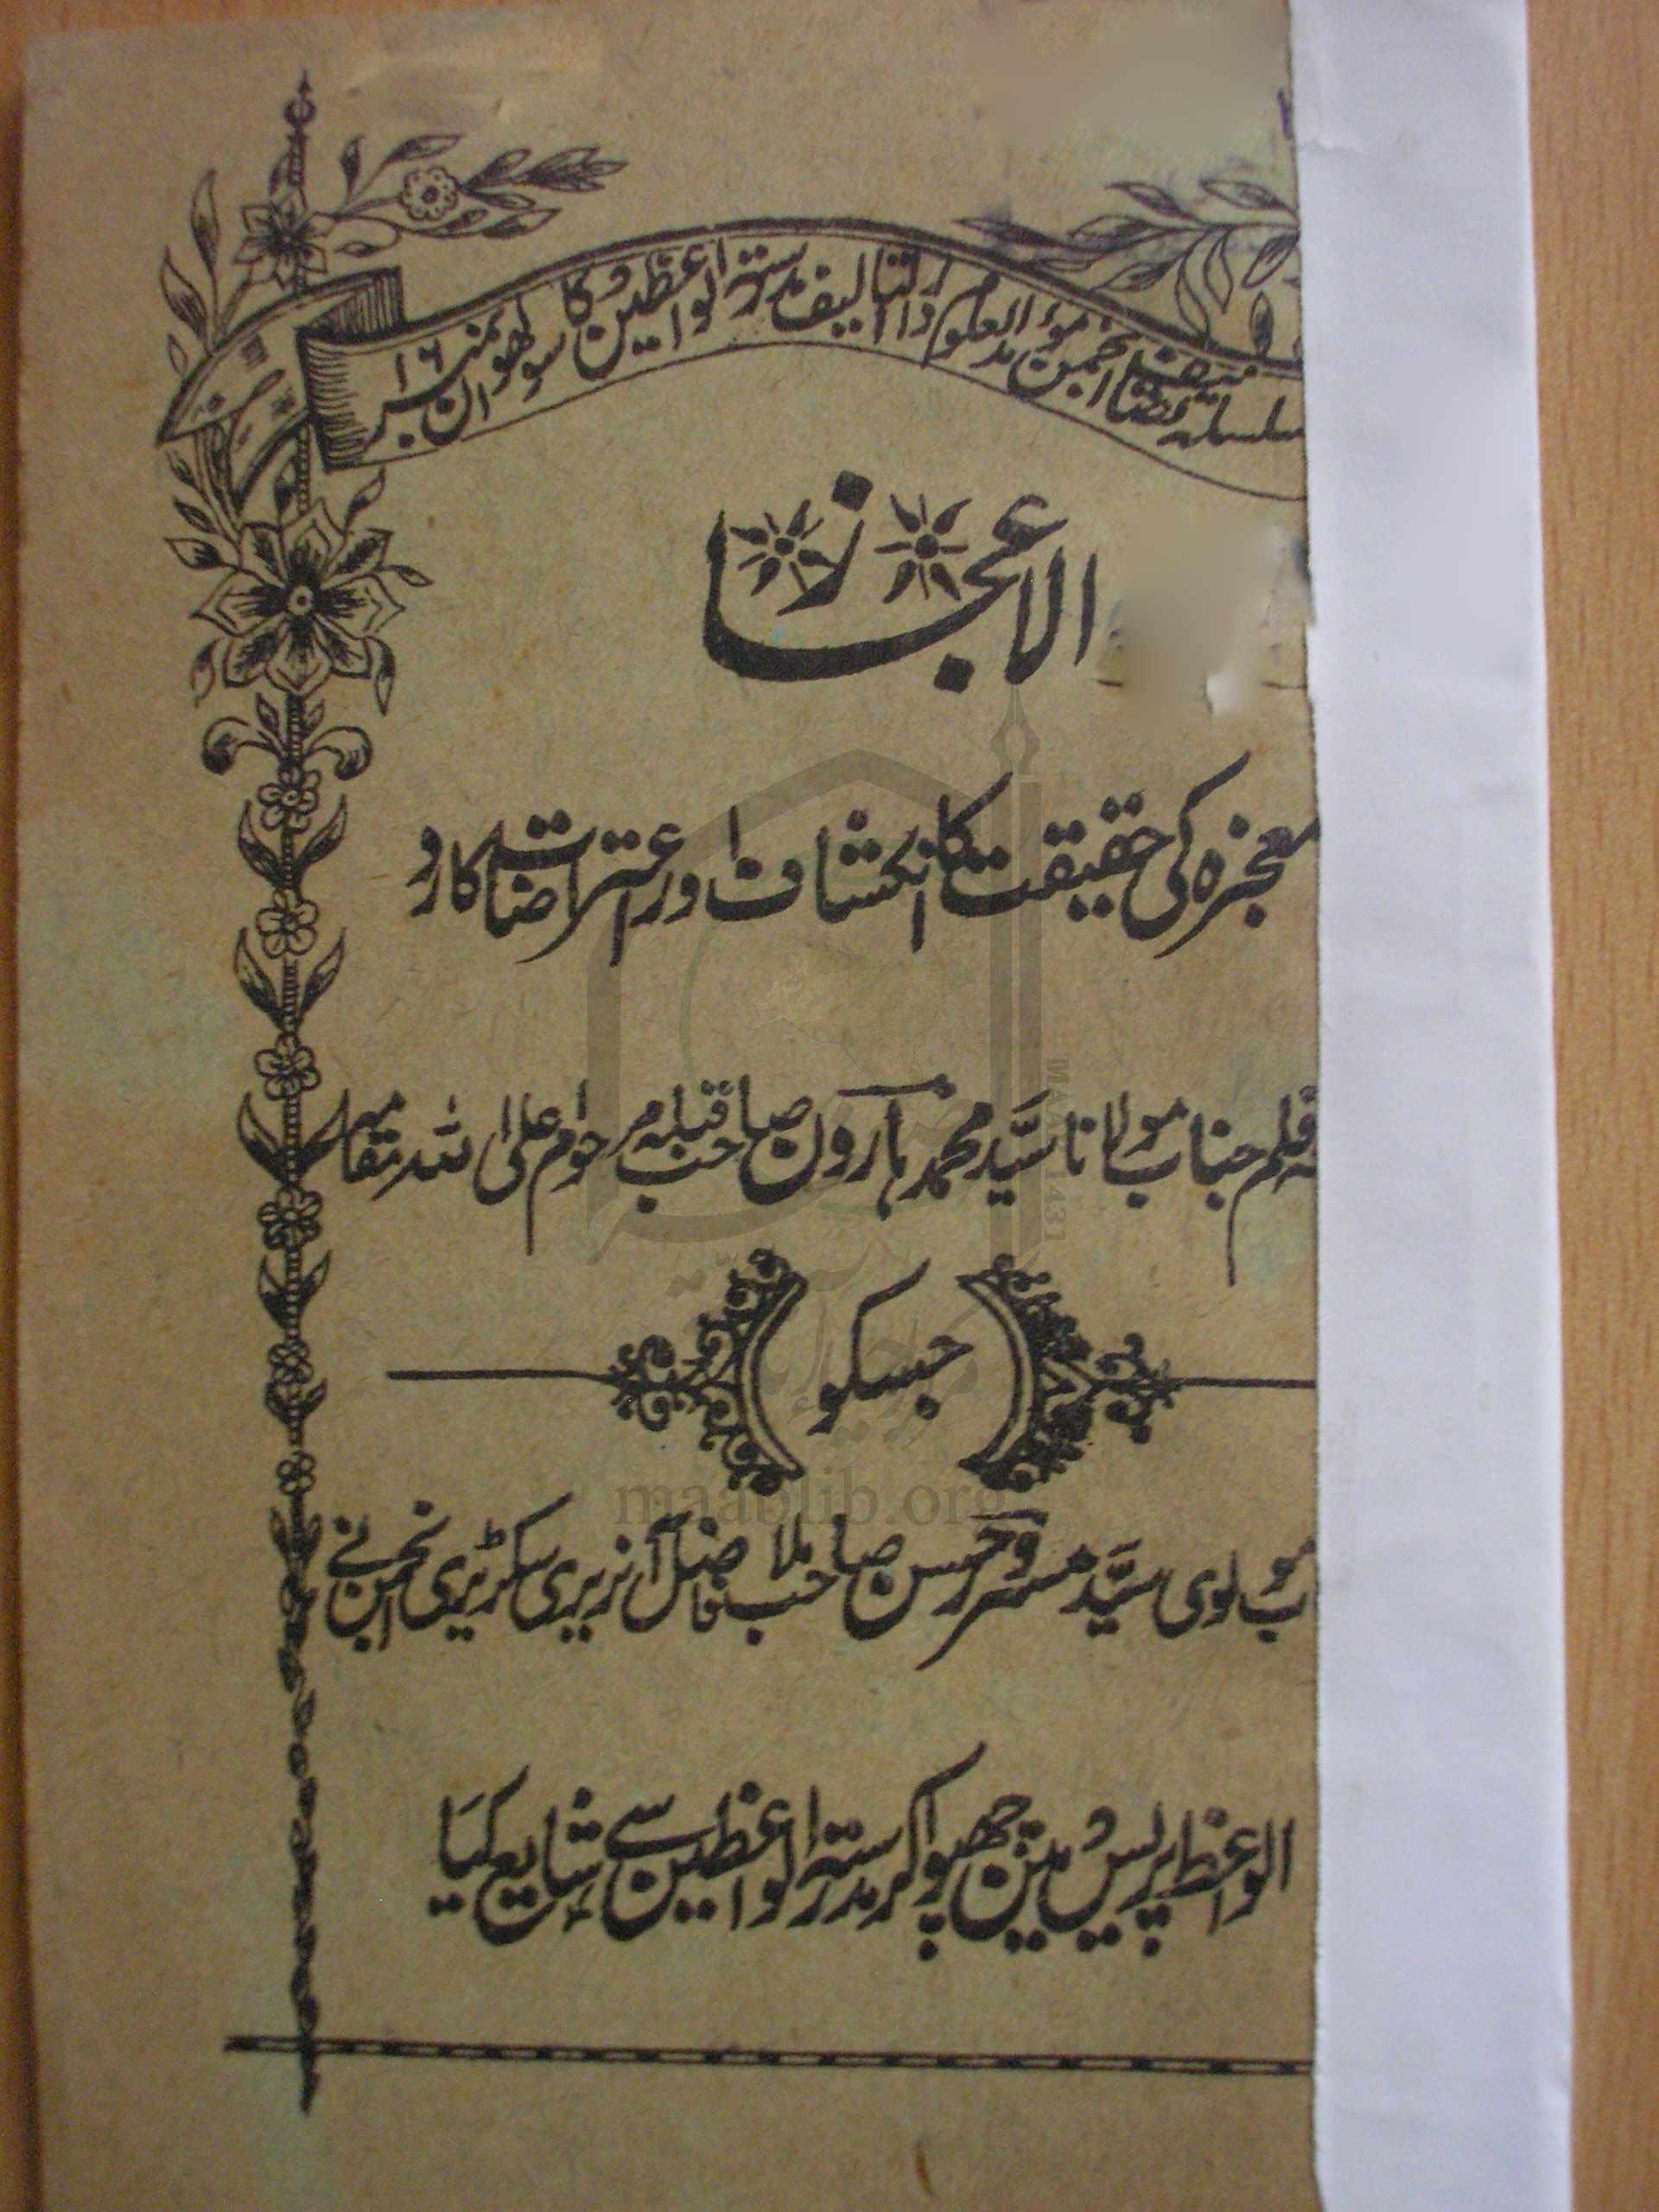 سلسلہ تصانیف انجمن مؤید العلوم دار التالیف مدرسۃ الواعظین کا سولھواں نمبر ۱۶
الاعجاز
معجزہ کی حقیقت کا انکشاف اور اعتراضات کا رد
قلم جناب مولانا سیّد محمد ہارون صاحب قبلہ مرحوم اعلی اللہ مقامہ
جسکو
مولوی سیّد مسرور حسن صاحب ملا فاضل آنریری سکریٹری انجمن نے
الواعظ پریس میں چھپوا کر مدرستہ الواعظین سے شایع کیا
maablib.org
MAAB 1431